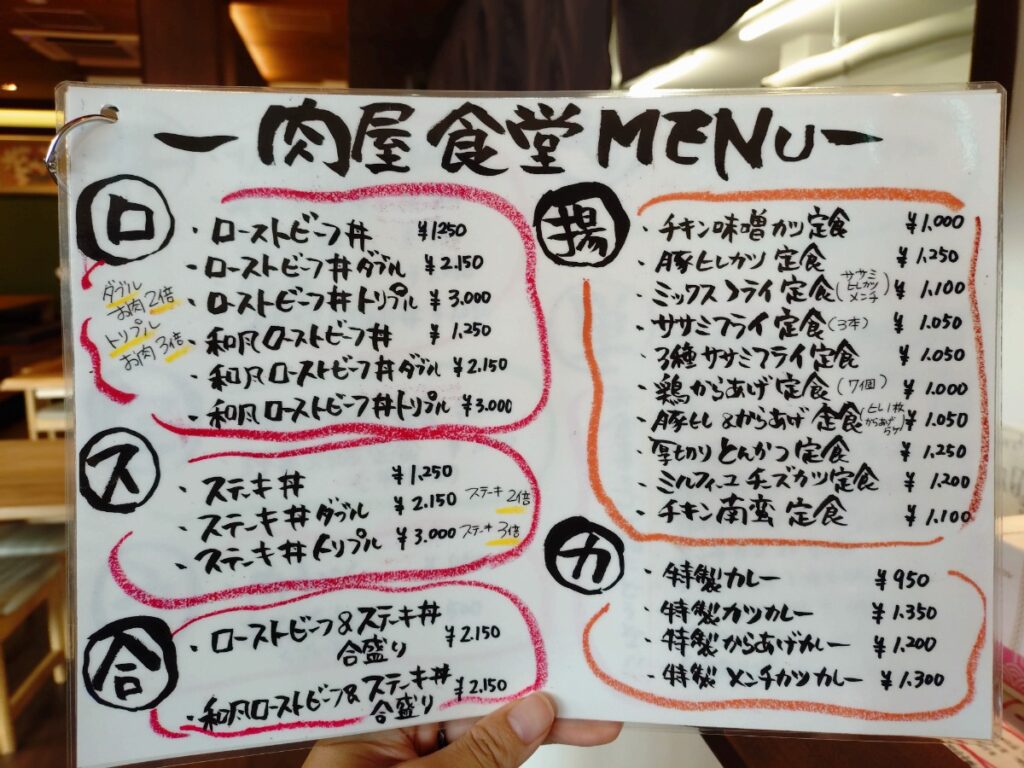 一肉屋食堂 MENU一
ロ
・ローストビーフ丼 ¥1,250
・ローストビーフ丼ダブル ¥2.150
・ローストビーフ丼トリプル ¥3.000
・和風ローストビーフ丼 ¥1.250
・和風ローストビーフ丼ダブル ¥2.150
・和風ローストビーフ丼トリプル ¥3.000
ダブル
お肉2倍
トリプル
お肉3倍
ス
・ステーキ丼 ¥1,250
・ステーキ丼ダブル ¥2.150 ステーキ2倍
・ステーキ丼トリプル ¥3.000 ステーキ3倍
合
・ローストビーフ&ステーキ丼
合盛り ¥2.150
・和風ローストビーフ&ステーキ丼
合盛り ¥2.150
揚
・チキン味噌カツ定食 ¥1.000
・豚ヒレカツ定食 ¥1.250
・ミックスフライ定食(ササミ ヒレカツ メンチ) ¥1.100
・ササミフライ定食(3本) ¥1.050
・3種ササミフライ定食 ¥1.050
・鶏からあげ定食(7個) ¥1.000
・豚ヒレ&からあげ定食(ヒレ1枚 からあげ5ケ) ¥1.050
・厚切りとんかつ定食 ¥1.250
・ミルフィーユチーズカツ定食 ¥1.200
・チキン南蛮定食 ¥1.100
カ
・特製カレー ¥950
・特製カツカレー ¥1.350
・特製からあげカレー ¥1.200
・特製メンチカツカレー ¥1.300